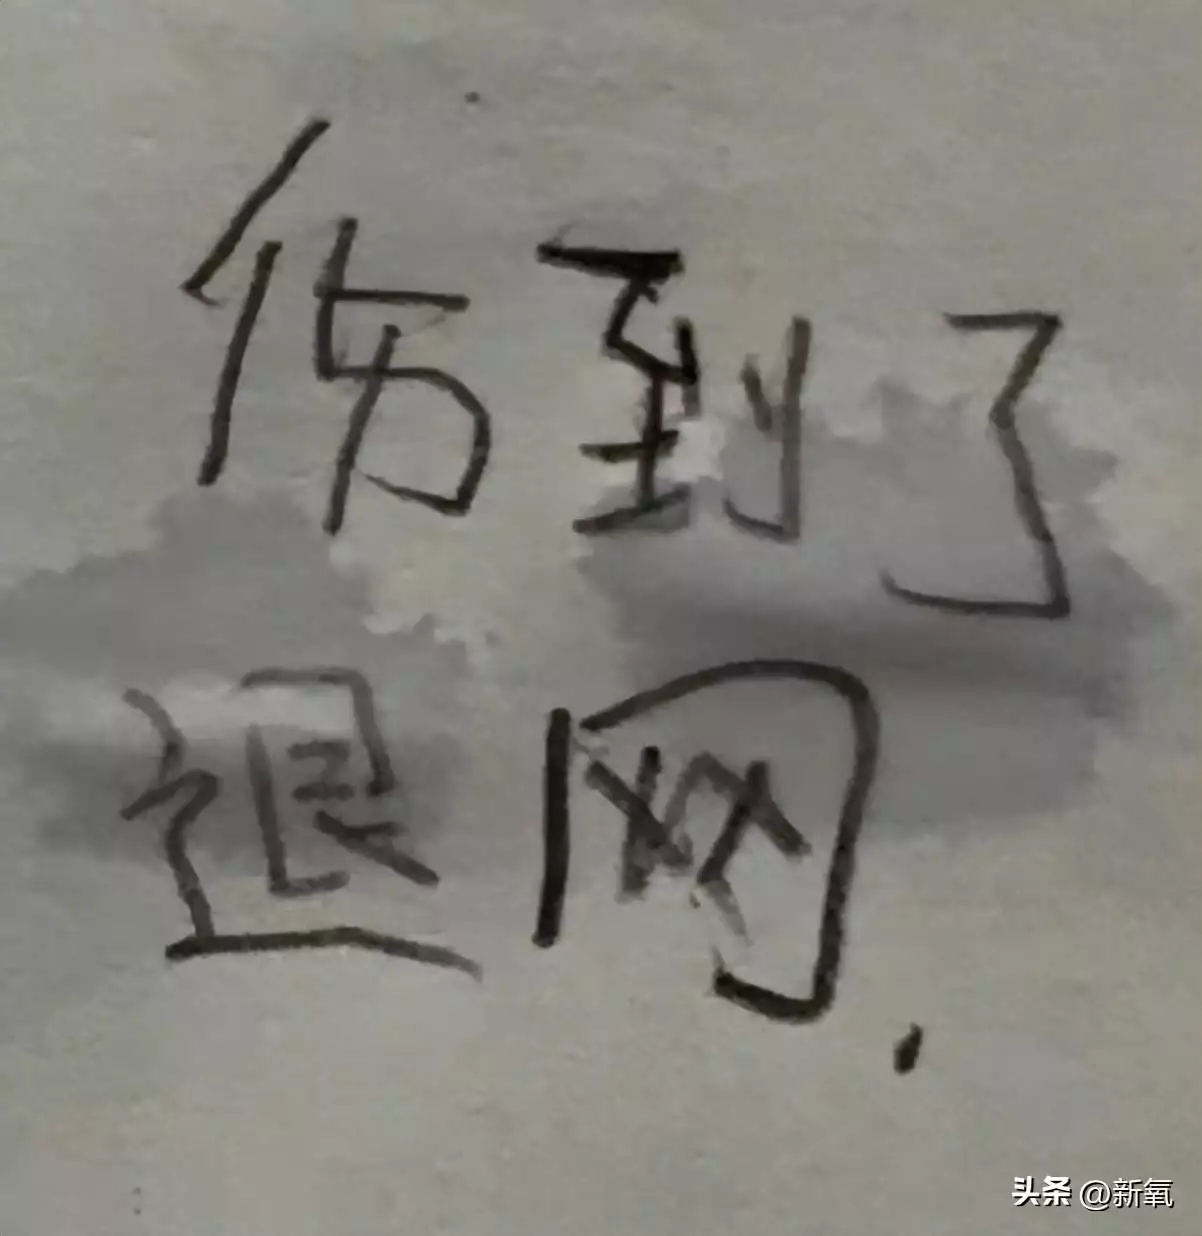 伤到了
退网.
头条 @新氧